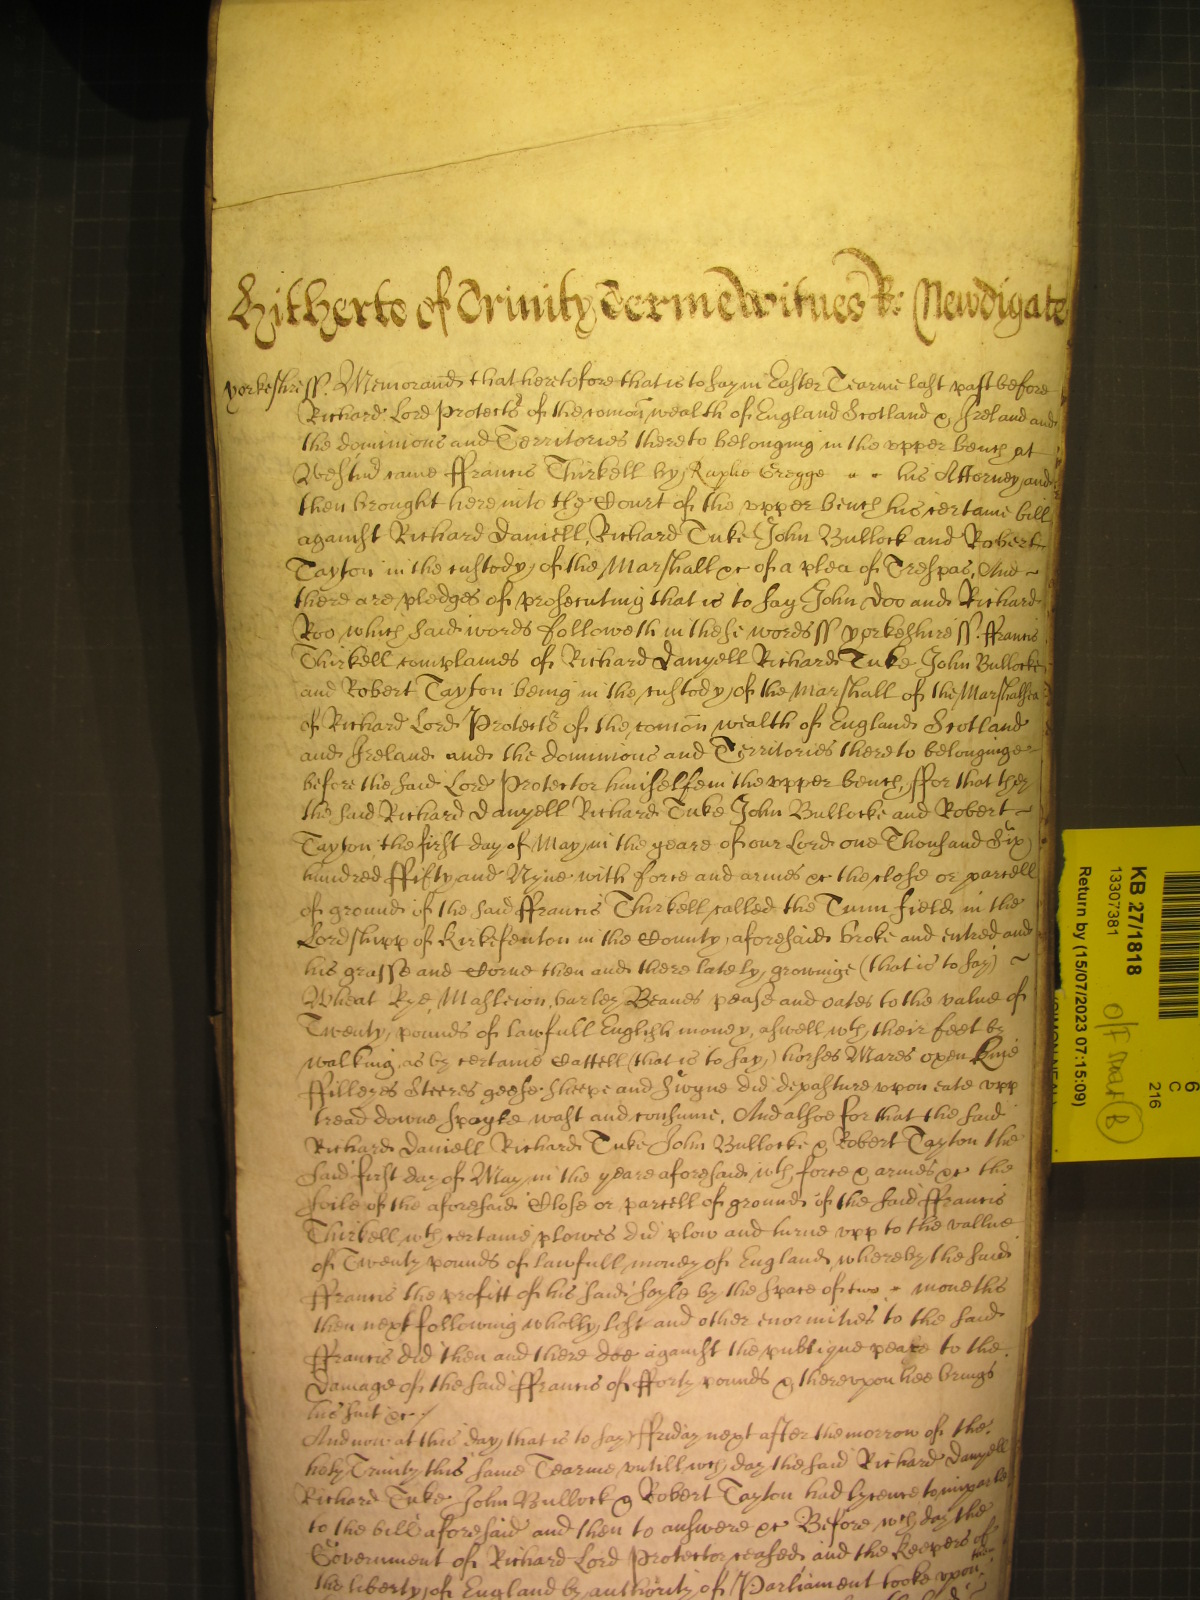 Hitherto of Trinity Terme Witnes R: Newdigate
Yorkeshire ss. Memorand that heretofore that is to say in Easter Tearme last past before
Richard Lord Protector of the comon wealth of England Scotland & Ireland and
the dominions and Territories thereto belonging in the upper bench at
Westm came ffrancis Thirkell by Raphe Gregge his Attorney and
then brought here into the Court of the upper bench his certaine bill
against Richard Daniell, Richard Tuke John Bullock and Robert
Tayton in the custody of the Marshall &c of a plea of Trespas, And
there are pledges of prosecuting that is to say John Doo and Richard
Roo, which said words followeth in these words ss Yorkeshire ss. ffrancis
Thirkell complaines of Richard Danyell Richard Tuke John Bullocke
and Robert Tayton being in the custody of the Marshall of the Marshalsea
of Richard Lord Protector of the comon wealth of England Scotland
and Ireland and the dominions and Territories thereto belonginge
before the said Lord Protector himselfe in the upper bench, ffor that they
the said Richard Danyell Richard Tuke John Bullocke and Robert
Tayton the first day of May in the yeare of our Lord one Thousand Six
hundred ffifty and Nyne with force and armes &c the close or parcell
of ground of the said ffrancis Thirkell called the Tunn field in the
Lordshipp of Kirkefenton in the County aforesaid broke and entred and
his grasse and Corne then and there lately growinge (that is to say)
Wheat Rye, Maslcion, barley Beanes pease and oates to the value of
Twenty pounds of lawfull English money, aswell wth their feet by
walking as by certaine Cattell (that is to say) horses Mares oxen Kine
ffilleyes Steeres geese Sheepe and Swyne did depasture upon eate upp
tread downe spoyle wast and consume, And alsoe for that the said
Richard Daniell Richard Tuke John Bullocke & Robert Tayton the
said first day of May in the yeare aforesaid wth force & armes &c the
soile of the aforesaid Close or parcell of ground of the said ffrancis
Thirkell wth certaine plowes did plow and turne upp to the vallue
of Twenty pounds of lawfull money of England, whereby the said
ffrancis the profitt of his said soyle by the space of two moneths
then next following wholly lost and other enormities to the said
ffrancis did then and there doe against the publique peace to the
Damage of the said ffrancis of fforty pounds & thereupon hee brings
his suit &c
And now at this day that is to say ffriday next after the morrow of the
holy Trinity this same Tearme, untill wch day the said Richard Danyell
Richard Tuke John Bullock & Robert Tayton had lycence to imparle
to the bill aforesaid and then to answere &c Before wch day the
Government of Richard Lord Protector ceased and the Keepers of
the liberty of England by authority of Parliament tooke upon
KB 27/1818
13307381
Return by (15/07/2023 07:15:09)
6
C
216